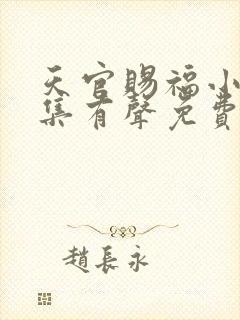 天官賜福小
集有聲免費
趙長永